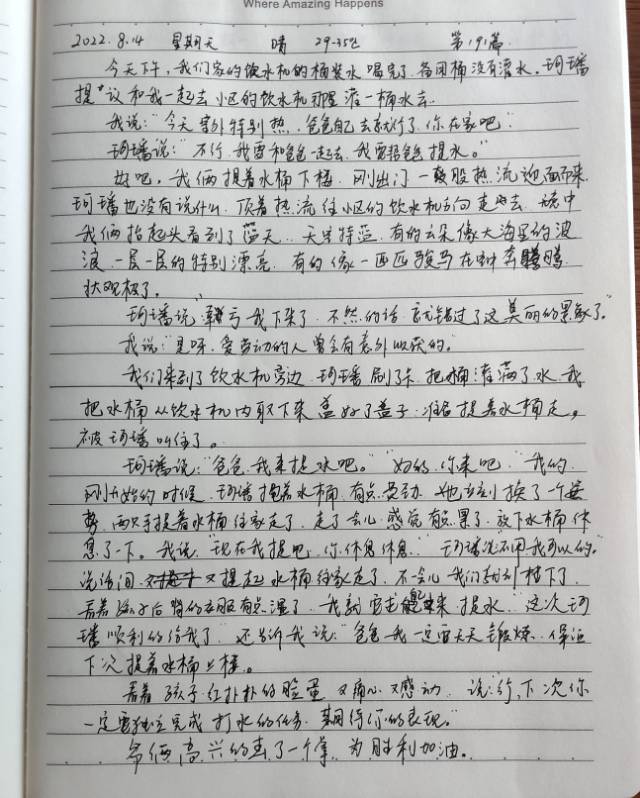 Where Amazing Happens
2022.8.14 星期天 晴 29-35℃ 第191篇
今天下午，我们家的饮水机的桶装水喝完了，备用桶没有灌水，珂璠
提议和我一起去小区的饮水机那里灌一桶水去。
我说：“今天室外特别热，爸爸自己去就行了，你在家吧”
珂璠说：“不行，我要和爸爸一起去，我要帮爸爸提水。”
好吧，我俩提着水桶下楼，刚出门一股热流迎面而来
珂璠也没有说什么，顶着热流往小区的饮水机方向走去，途中
我俩抬起头看到了蓝天，天特蓝，有的云朵像大海里的波
浪，一层一层的特别漂亮，有的像一匹匹骏马在奔腾
壮观极了。
珂璠说：“幸亏我下来了，不然的话就错过了这美丽的景象了。”
我说：“是呀，爱劳动的人曾会有意外收获的。”
我们来到了饮水机旁边，珂璠刷了卡，把桶灌满了水，我
把水桶从饮水机内取下来盖好了盖子，准备提着水桶走，
被珂璠叫住了。
珂璠说：“爸爸，我来提水吧。”“好的，你来吧”“我的
刚开始的时候，珂璠提着水桶，有点晃动，她立刻换了一个姿
势，两只手提着水桶往家走了，走了会儿，感觉有点累了，放下水桶休
息了一下。我说：“现在我提吧，你休息休息”珂璠说不用我可以的。
说话间，又提起水桶往家走了，不会儿我们就到楼下了，
看着孩子后背的衣服有点湿了，我说来提水，这次珂
璠顺利的给我了，还告诉我说：“爸爸我一定要天天锻炼，保证
下次提着水桶上楼。
看着孩子红扑扑的脸蛋又痛心又感动，说：行，下次你
一定要独立完成打水的任务，期待你的表现。”
爷俩高兴的击了一个掌，为胜利加油。